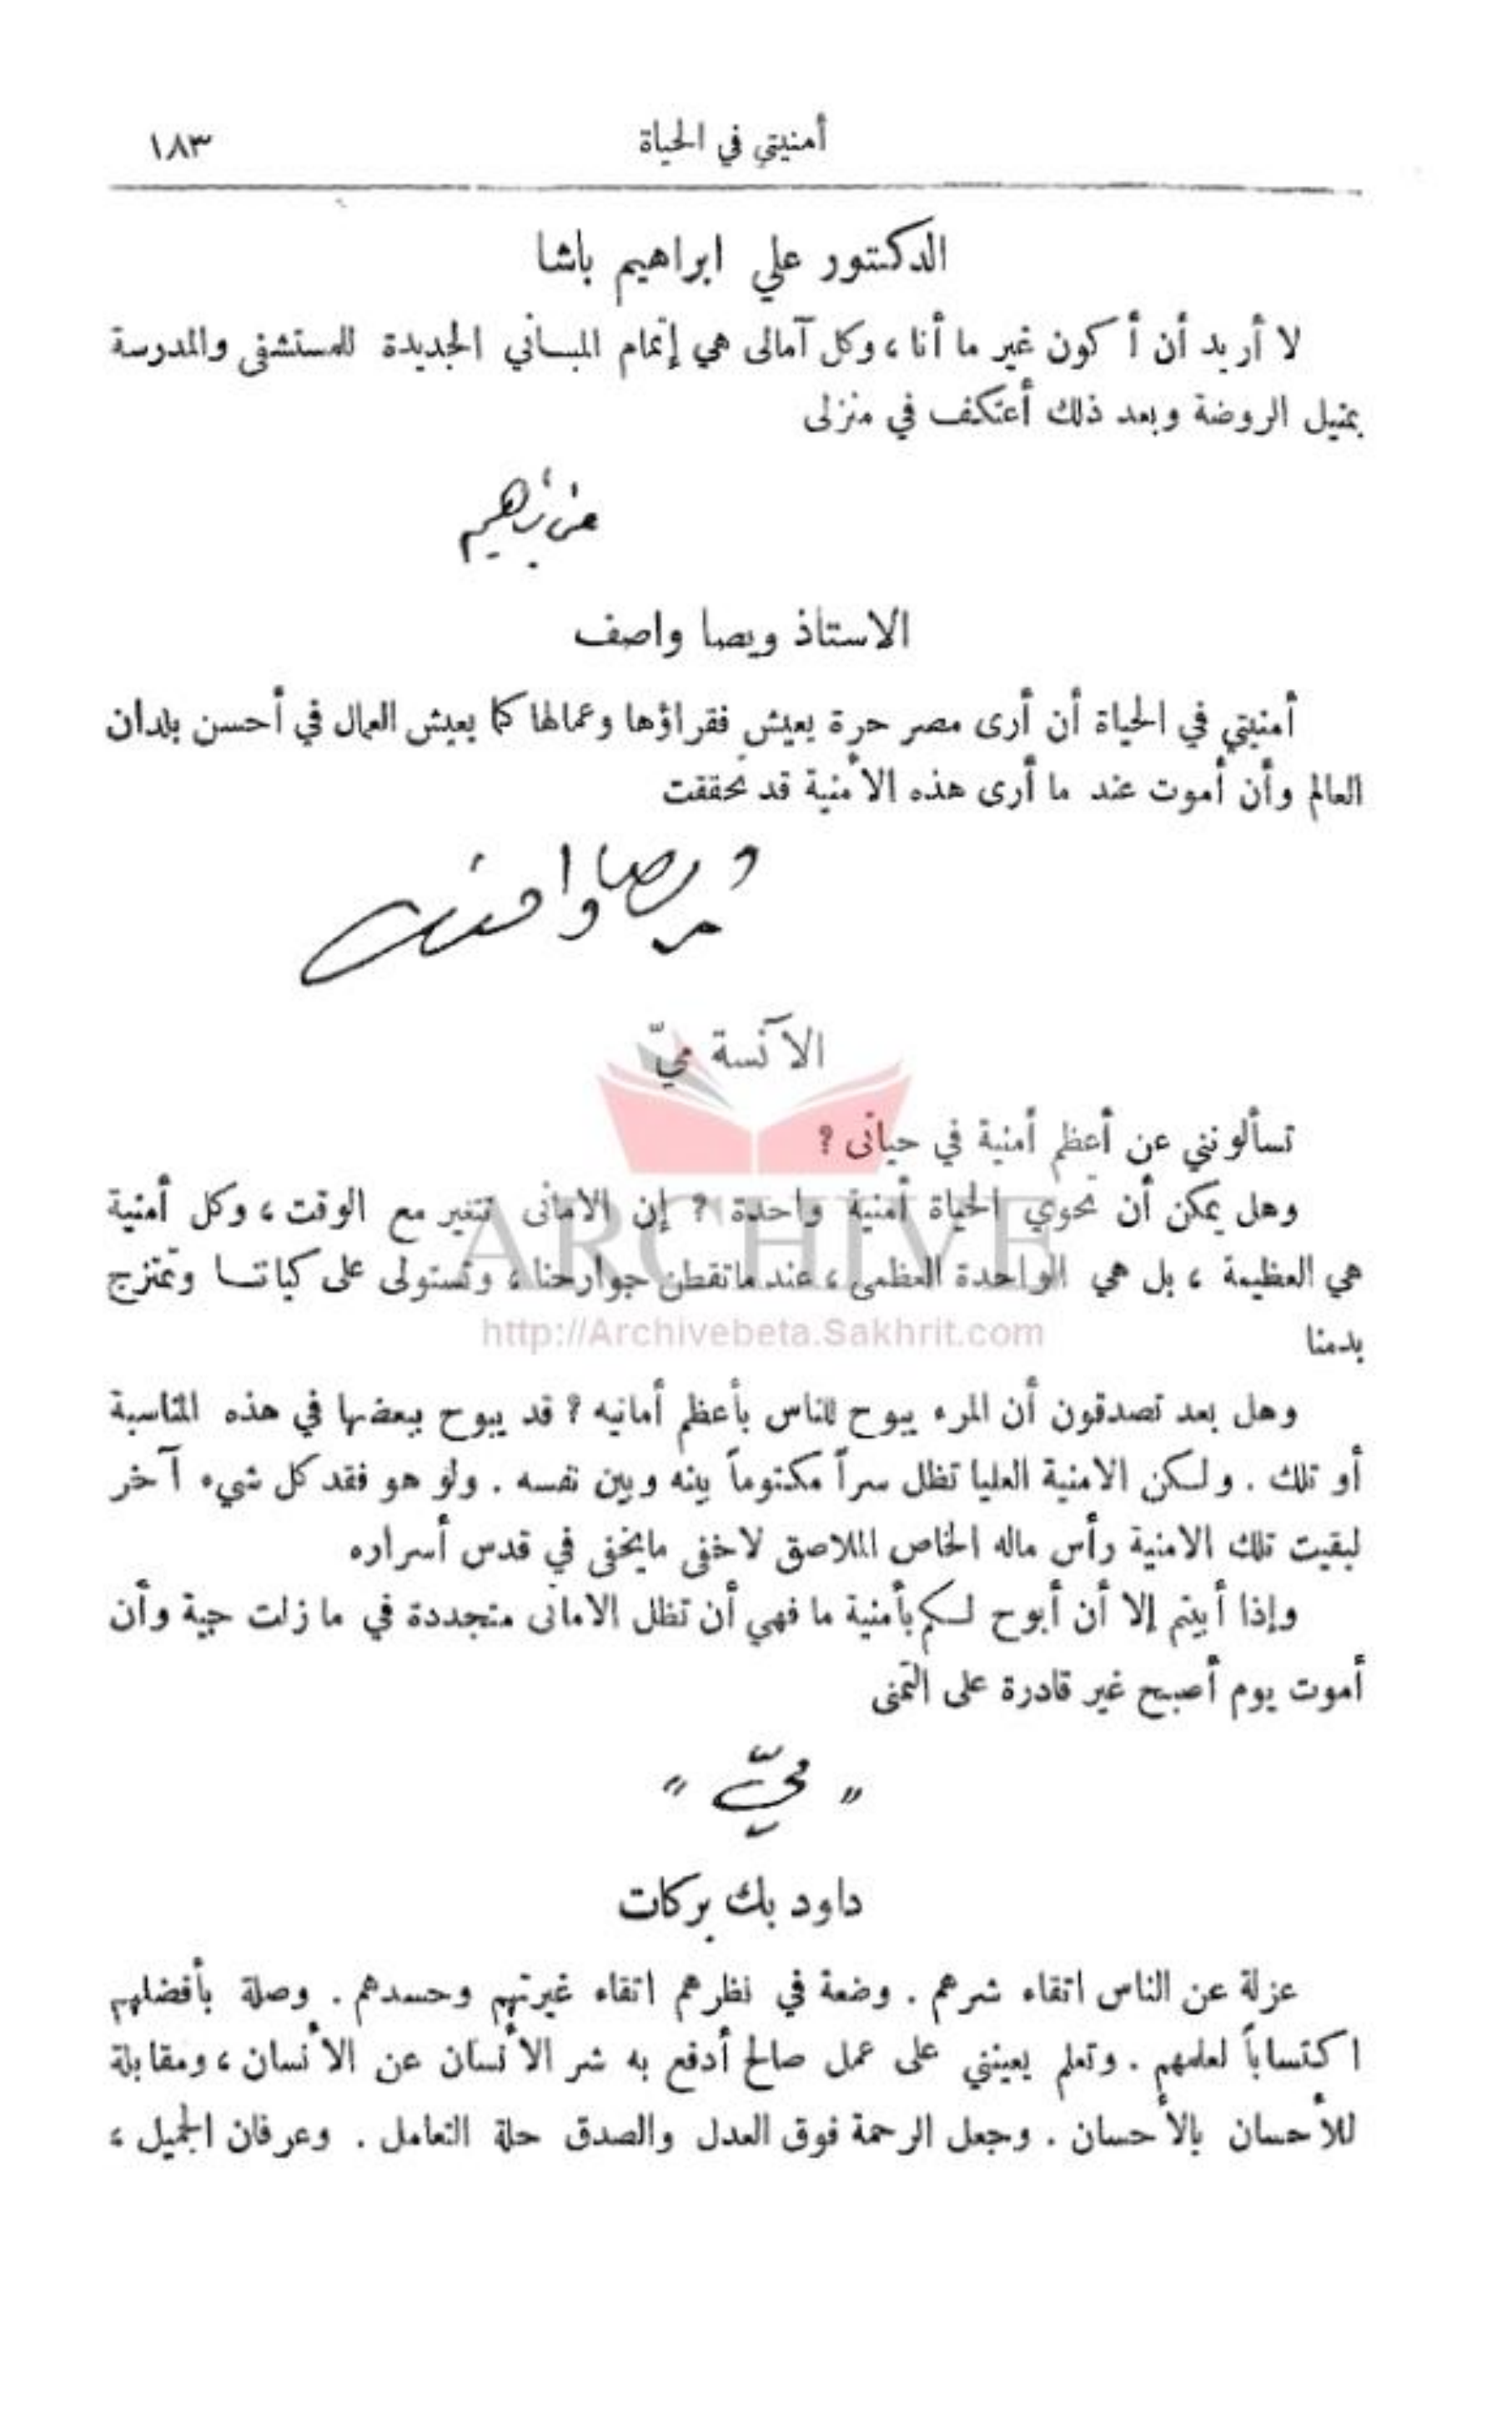 أمنيتي في الحياة
١٨٣
الدكتور علي ابراهيم باشا
لا أريد أن أكون غير ما أنا ، وكل آمالى هي إتمام المباني الجديدة للمستشفى والمدرسة
بمنيل الروضة وبعد ذلك أعتكف في منزلى
الاستاذ ويصا واصف
أمنيتي في الحياة أن أرى مصر حرة يعيش فقراؤها وعمالها كما يعيش العمال في أحسن بلدان
العالم وأن أموت عند ما أرى هذه الأمنية قد تحققت
ويصا واصف
الآنسة ميّ
تسألونني عن أعظم أمنية في حياتى ؟
وهل يمكن أن تحوي الحياة أمنية واحدة ؟ إن الامانى تتغير مع الوقت ، وكل أمنية
هي العظيمة ، بل هي الواحدة العظمى ، عند ماتقطن جوارحنا ، وتستولى على كياننا وتمتزج
بدمنا
وهل بعد تصدقون أن المرء يبوح للناس بأعظم أمانيه ؟ قد يبوح ببعضها في هذه المناسبة
أو تلك . ولكن الامنية العليا تظل سراً مكتوماً بينه وبين نفسه . ولو هو فقد كل شيء آخر
لبقيت تلك الامنية رأس ماله الخاص الملاصق لاخفى مايخفى في قدس أسراره
وإذا أبيتم إلا أن أبوح لكم بأمنية ما فهي أن تظل الامانى متجددة في ما زلت حية وأن
أموت يوم أصبح غير قادرة على التمنى
" ميّ "
داود بك بركات
عزلة عن الناس اتقاء شرهم . وضعة في نظرهم اتقاء غيرتهم وحسدهم . وصلة بأفضلهم
اكتساباً لعلمهم . وتعلم يعينني على عمل صالح أدفع به شر الأنسان عن الأنسان ، ومقابلة
للأحسان بالأحسان . وجعل الرحمة فوق العدل والصدق حلة التعامل . وعرفان الجميل ،
ARCHIVE
http://Archivebeta.Sakhrit.com